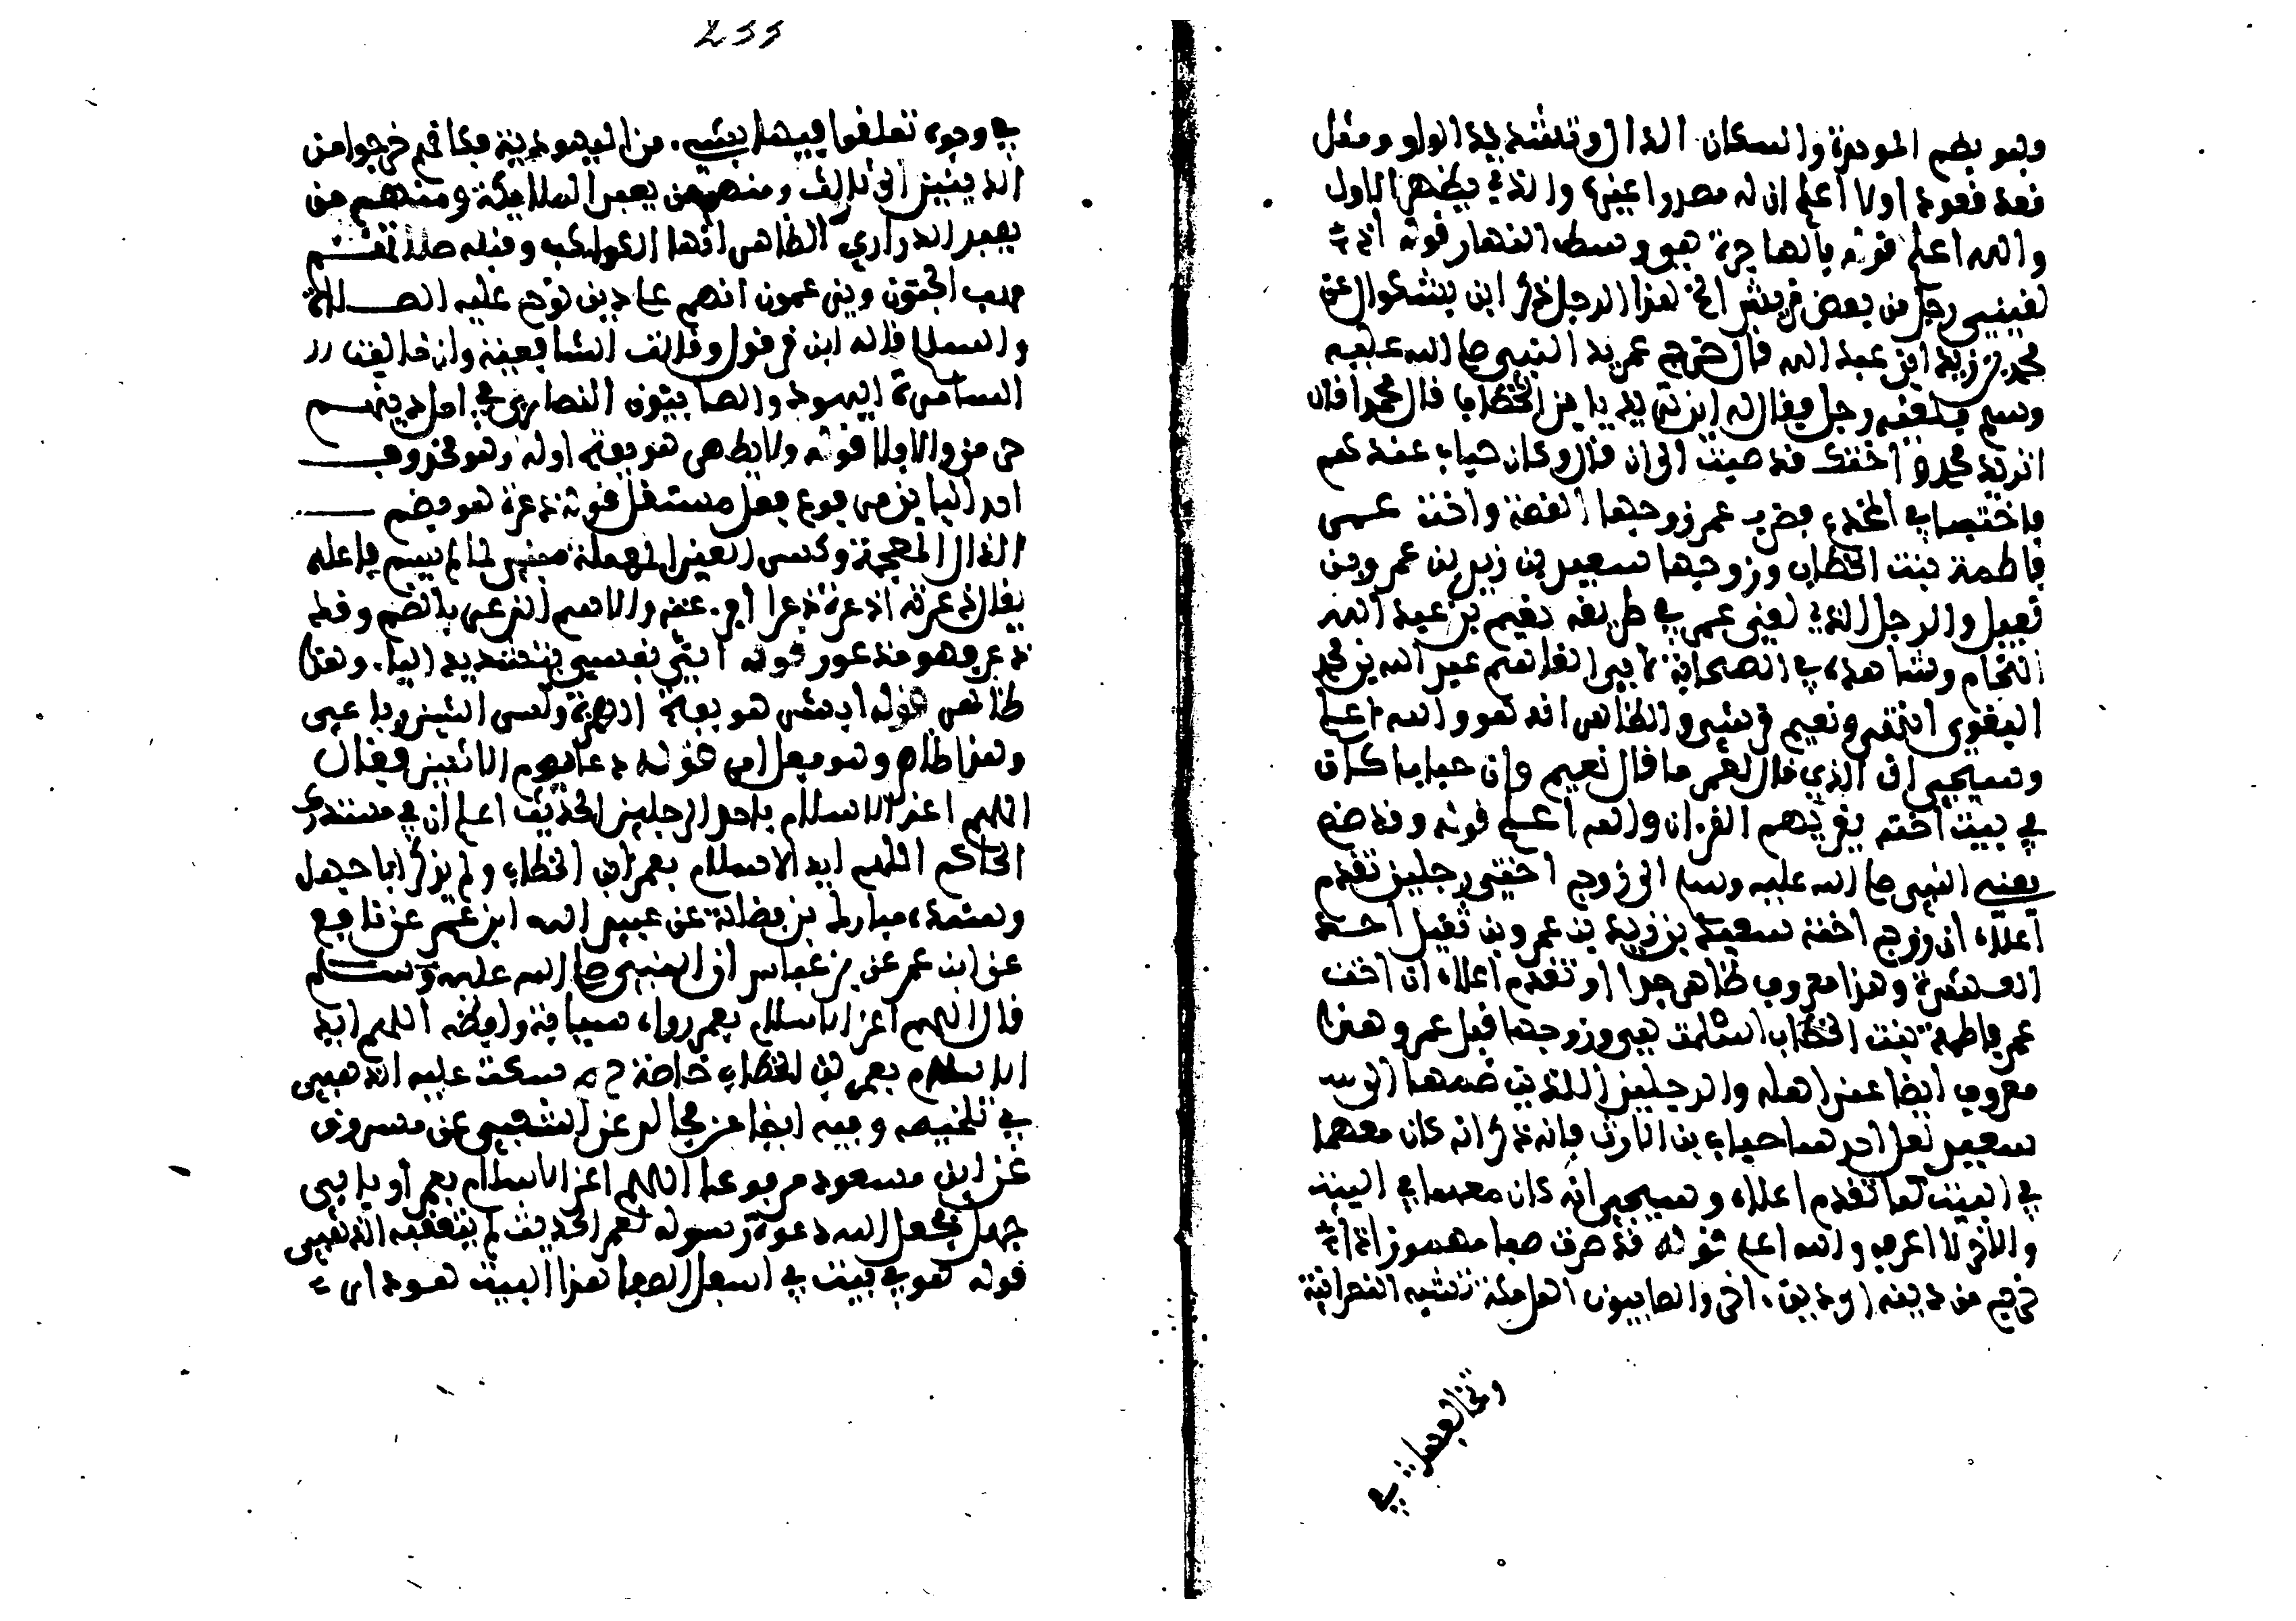 وهو بضم الموحدة واسكان الذال وتشديد الواو ومثل
قعد قعودا ولا اعلم ان له مصدرا غيره والذي يظهر الاول
والله اعلم قوله بالهاجرة هي وسط النهار قوله اذ
لقيني رجل من بعض قريش الخ هذا الرجل ذكر ابن بشكوال عن
محمد بن زيد ابن عبد الله قال خرج عمر يريد النبي صلى الله عليه
وسلم فلقيه رجل فقال له اين تريد يا بن الخطاب قال محمدا قال
اتريد محمدا واختك قد صبت الى ان قال وكان خباب عندهم
فاختبا في المخدع فضرب عمر زوجها القصة واخت عمر
فاطمة بنت الخطاب وزوجها سعيد بن زيد بن عمرو بن
نفيل والرجل الذي لقي عمر في طريقه نعيم بن عبد الله
النحام وشاهده في الصحابة لابي القاسم عبد الله بن محمد
البغوي انتهى ونعيم قرشي والظاهر انه هو والله اعلم
وسيجيء ان الذي قال لعمر ما قال نعيم وان خبابا كان
في بيت اخته يقريهم القرءان والله اعلم قوله وقد ضم
يعني النبي صلى الله عليه وسلم الى زوج اختي رجلين تقدم
اعلاه ان زوج اخته سعيد بن زيد بن عمرو بن نفيل احد
العشرة وهذا معروف ظاهر جدا وتقدم اعلاه ان اخت
عمر فاطمة بنت الخطاب اسلمت هي وزوجها قبل عمر وهذا
معروف ايضا عند اهله والرجلين اللذين ضمهما الى
سعيد لعل احدهما خباب بن الارت فانه ذكر انه كان معهما
في البيت كما تقدم اعلاه وسيجيء انه كان معهما في البيت
والاخر لا اعرفه والله اعلم قوله قد صبات صبا مهموز اذا
خرج من دينه الى دين اخر والصابيون اهل ملة تشبه النصرانية
وتخالفها في
233
في وجوه تعلقوا فيها بشيء من اليهودية فكانهم خرجوا من
الدينين الى ثالث ومنهم من يعبد الملائكة ومنهم من
يعبد الدراري الظاهر انها الكواكب وقبله صلاتهم
مهب الجنوب ويزعمون انهم على دين نوح عليه الصلاة
والسلام قاله ابن قرقول وقالت الشافعية وان خالفت
السامرة اليهود والصابئون النصارى في اصل دينهم
حرمن والا فلا قوله ولا يظهر هو بفتح اوله وهو محذوف
احد اليائين مرفوع فعل مستقبل قوله ذعرة هو بضم
الذال المعجمة وكسر العين المهملة مبني لما لم يسم فاعله
يقال ذعرته اذعره ذعرا افزعته والاسم الذعر بالضم وقد
ذعر فهو مذعور قوله ابشر بفتح بتشديد الياء وهذا
ظاهر قوله ابشر هو بفتح الهمزة وكسر الشين رباعي
وهذا ظاهر وهو فعل امر قوله دعا يوم الاثنين فقال
اللهم اعز الاسلام باحد الرجلين الحديث اعلم ان في مستدرك
الحاكم اللهم ايد الاسلام بعمر ابن الخطاب ولم يذكر ابا جهل
وسنده مبارك بن فضالة عن عبيد الله ابن عمر عن نافع
عن ابن عمر عن بن عباس ان النبي صلى الله عليه وسلم
قال اللهم اعز الاسلام بعمر رواه شبابة ولفظه اللهم ايد
الاسلام بعمر بن الخطاب خاصة سكت عليه الذهبي
في تلخيصه وفيه ايضا عن مجالد عن الشعبي عن مسروق
عن ابن مسعود مرفوعا اللهم اعز الاسلام بعمر او بابي
جهل فجعل الله دعوة رسوله لعمر الحديث لم يتعقبه الذهبي
قوله هو في بيت في اسفل الصفا هذا البيت هو دار